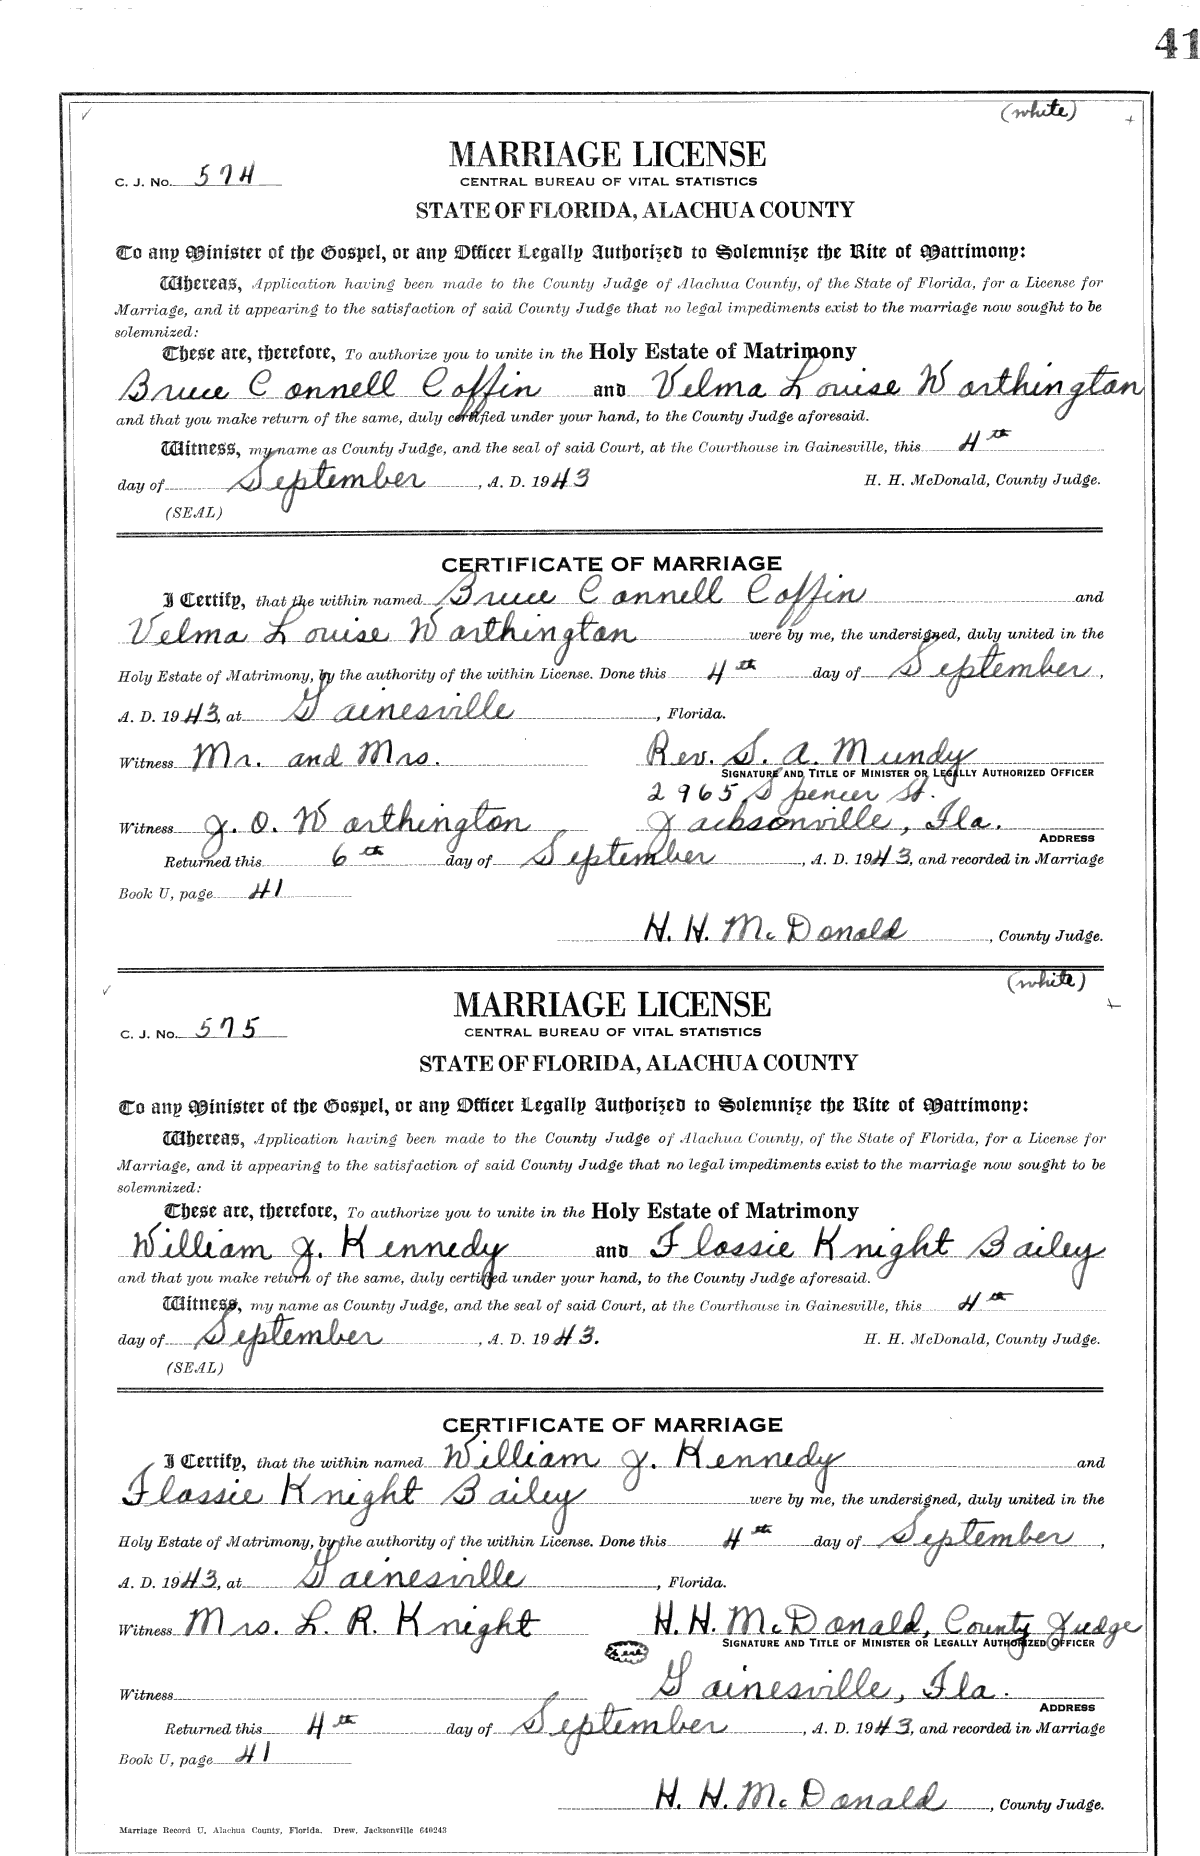 41
(white)
MARRIAGE LICENSE
C. J. No. 574
CENTRAL BUREAU OF VITAL STATISTICS
STATE OF FLORIDA, ALACHUA COUNTY
To any Minister of the Gospel, or any Officer Legally Authorized to Solemnize the Rite of Matrimony:
Whereas, Application having been made to the County Judge of Alachua County, of the State of Florida, for a License for
Marriage, and it appearing to the satisfaction of said County Judge that no legal impediments exist to the marriage now sought to be
solemnized:
These are, therefore, To authorize you to unite in the Holy Estate of Matrimony
Bruce Connell Coffin and Velma Louise Worthington
and that you make return of the same, duly certified under your hand, to the County Judge aforesaid.
Witness, my name as County Judge, and the seal of said Court, at the Courthouse in Gainesville, this 4th
day of September, A. D. 1943 H. H. McDonald, County Judge.
(SEAL)
CERTIFICATE OF MARRIAGE
I Certify, that the within named Bruce Connell Coffin and
Velma Louise Worthington were by me, the undersigned, duly united in the
Holy Estate of Matrimony, by the authority of the within License. Done this 4th day of September,
A. D. 1943, at Gainesville, Florida.
Witness Mr. and Mrs. Rev. S. A. Mundy
SIGNATURE AND TITLE OF MINISTER OR LEGALLY AUTHORIZED OFFICER
2965 Spencer St.
Witness J. O. Worthington Jacksonville, Fla.
ADDRESS
Returned this 6th day of September, A. D. 1943, and recorded in Marriage
Book U, page 41
H. H. McDonald, County Judge.
(white)
MARRIAGE LICENSE
C. J. No. 575
CENTRAL BUREAU OF VITAL STATISTICS
STATE OF FLORIDA, ALACHUA COUNTY
To any Minister of the Gospel, or any Officer Legally Authorized to Solemnize the Rite of Matrimony:
Whereas, Application having been made to the County Judge of Alachua County, of the State of Florida, for a License for
Marriage, and it appearing to the satisfaction of said County Judge that no legal impediments exist to the marriage now sought to be
solemnized:
These are, therefore, To authorize you to unite in the Holy Estate of Matrimony
William J. Kennedy and Flossie Knight Bailey
and that you make return of the same, duly certified under your hand, to the County Judge aforesaid.
Witness, my name as County Judge, and the seal of said Court, at the Courthouse in Gainesville, this 4th
day of September, A. D. 1943. H. H. McDonald, County Judge.
(SEAL)
CERTIFICATE OF MARRIAGE
I Certify, that the within named William J. Kennedy and
Flossie Knight Bailey were by me, the undersigned, duly united in the
Holy Estate of Matrimony, by the authority of the within License. Done this 4th day of September,
A. D. 1943, at Gainesville, Florida.
Witness Mrs. L. R. Knight H. H. McDonald, County Judge
SIGNATURE AND TITLE OF MINISTER OR LEGALLY AUTHORIZED OFFICER
Seal
Witness Gainesville, Fla.
ADDRESS
Returned this 4th day of September, A. D. 1943, and recorded in Marriage
Book U, page 41
H. H. McDonald, County Judge.
Marriage Record U, Alachua County, Florida. Drew, Jacksonville 640243